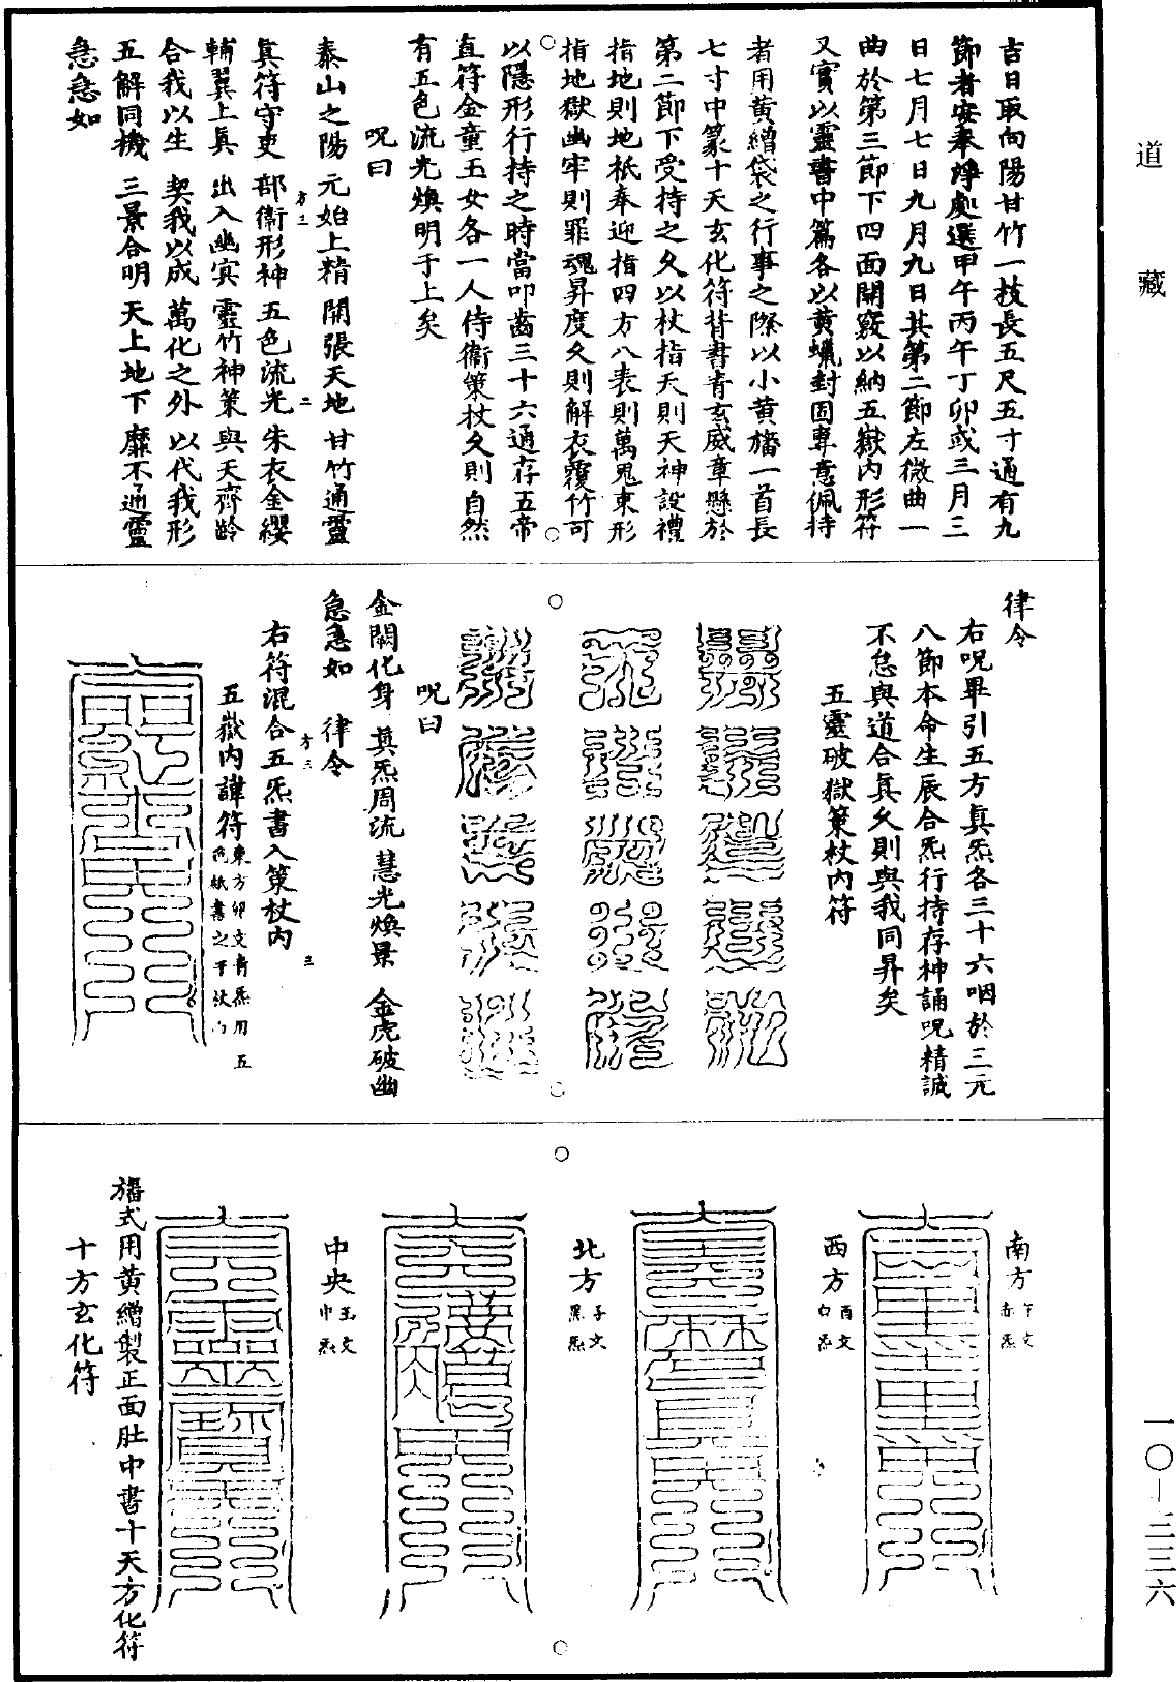 道藏
吉日取向陽甘竹一枝長五尺五寸通有九
節者安奉淨處選甲午丙午丁卯或三月三
日七月七日九月九日其第二節左微曲一
曲於第三節下四面開竅以納五嶽內形符
又實以靈書中篇各以黃蠟封固專意佩持
者用黃繒袋之行事之際以小黃旛一首長
七寸中篆十天玄化符背書青玄威章懸於
第二節下受持之久以杖指天則天神設禮
指地則地祇奉迎指四方八表則萬鬼束形
指地獄幽牢則罪魂昇度久則解衣覆竹可
以隱形行持之時當叩齒三十六通存五帝
直符金童玉女各一人侍衞策杖久則自然
有五色流光煥明于上矣
呪曰
泰山之陽 元始上精 開張天地 甘竹通靈
真符守吏 部衞形神 五色流光 朱衣金纓
輔翼上真 出入幽冥 靈竹神策 與天齊齡
合我以生 契我以成 萬化之外 以代我形
五解同機 三景合明 天上地下 靡不通靈
急急如
律令
右呪畢引五方真炁各三十六咽於三元
八節本命生辰合炁行持存神誦呪精誠
不怠與道合真久則與我同昇矣
五靈破獄策杖內符
呪曰
金闕化身 真炁周流 慧光煥景 金虎破幽
急急如 律令
右符混合五炁書入策杖內
五嶽內諱符 東方卯文青炁用五
色紙書之于杖內
南方 午文
赤炁
西方 酉文
白炁
北方 子文
黑炁
中央 玉文
中炁
旛式用黃繒製正面肚中書十天方化符
十方玄化符
一〇—三三六